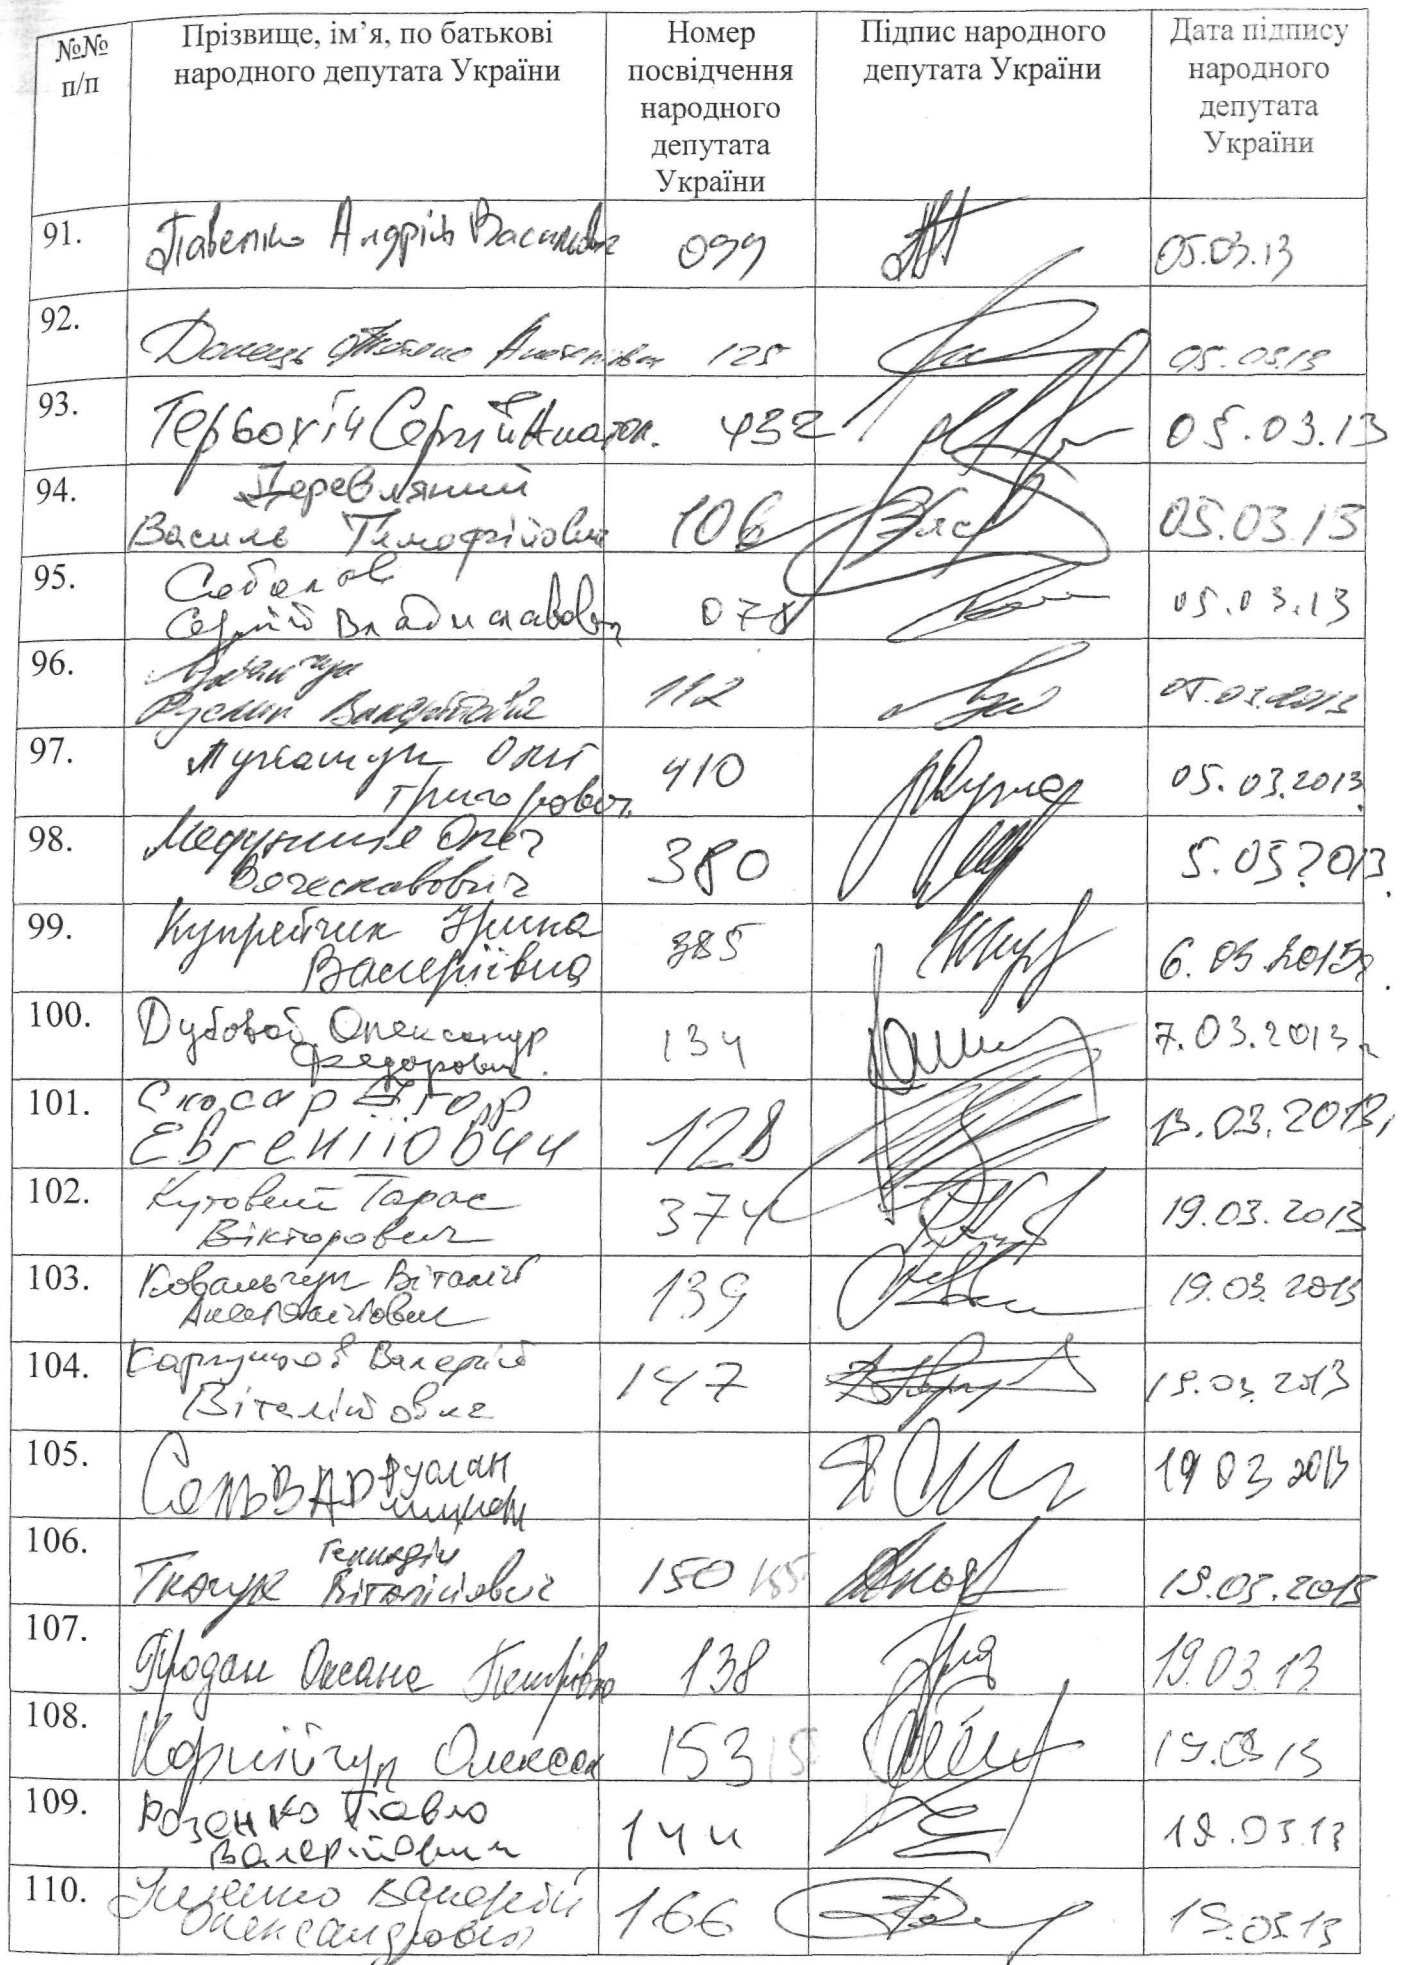 №№
п/п
Прізвище, ім’я, по батькові
народного депутата України
Номер
посвідчення
народного
депутата
України
Підпис народного
депутата України
Дата підпису
народного
депутата
України
91.
Павелко Андрій Васильович
099
05.03.13
92.
Донець Тетяна Анатоліївна
125
05.03.13
93.
Терьохін Сергій Анатол.
432
05.03.13
94.
Деревляний
Василь Тимофійович
106
05.03.13
95.
Соболєв
Сергій Владиславович
078
05.03.13
96.
Лук'янчук
Руслан Валерійович
112
05.03.2013
97.
Мусташук Олег
Григорович
410
05.03.2013
98.
Медуниця Олег
Вячеславович
380
5.03.2013
99.
Купрейчик Ірина
Валеріївна
385
6.03.2013р.
100.
Дубовой Олександр
Федорович.
134
7.03.2013р.
101.
Скосар Ігор
Евгенійович
128
13.03.2013
102.
Кутовий Тарас
Вікторович
374
19.03.2013
103.
Ковальчук Віталій
Анатолійович
139
19.03.2013
104.
Карпунцов Валерій
Віталійович
147
19.03.2013
105.
Сольвар Руслан
19 03 2013
106.
Геннадій
Ткачук Віталійович
150
19.03.2013
107.
Продан Оксана Петрівна
138
19.03.13
108.
Корнійчук Олексан
153
19.03 13
109.
Розенко Павло
Валерійович
144
19.03.13
110.
Іщенко Валерій
Олександрович
166
19.03.13